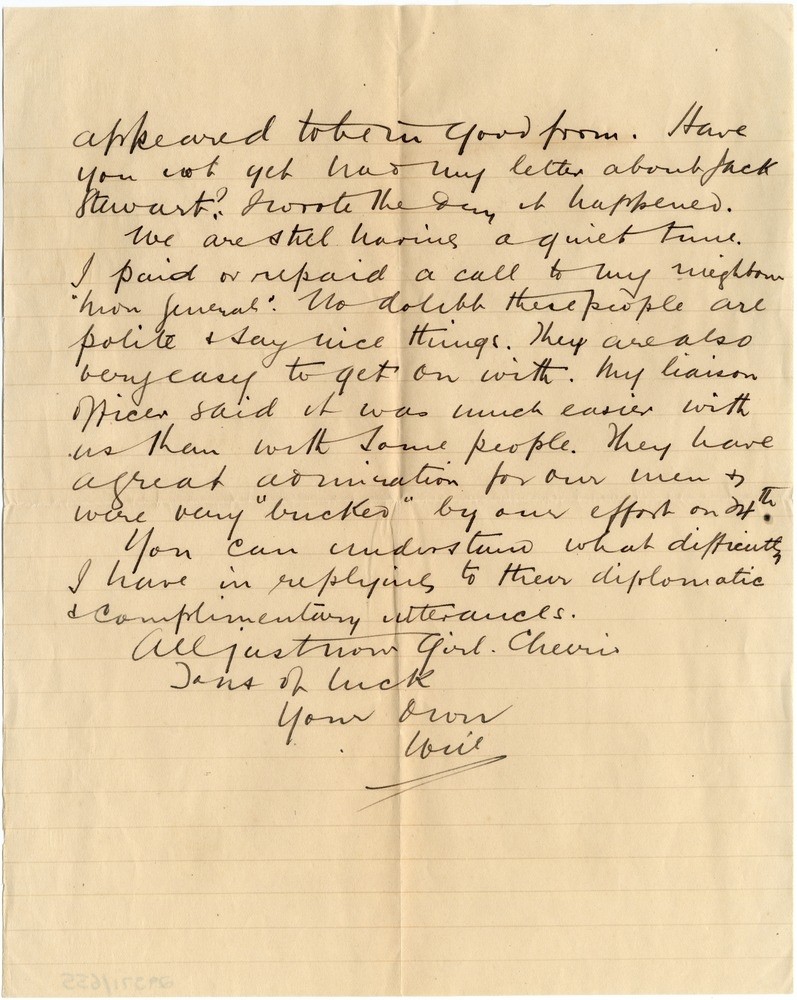 appeared to be in good from. Have
you not yet had my letter about Jack
Stewart? I wrote the day it happened.
We are still having a quiet time.
I paid or repaid a call to my nieghbour
"Mon General". No doubt these people are
polite & say nice things. They are also
very easy to get on with. My liaison
officer said it was much easier with
us than with some people. They have
a great admiration for our men &
were very "bucked" by our effort on 24th.
You can understand what difficulty
I have in replying to their diplomatic
& complimentary utterances.
All just now Girl. Cheerio
Tons of luck
Your Own
Will
29371/655